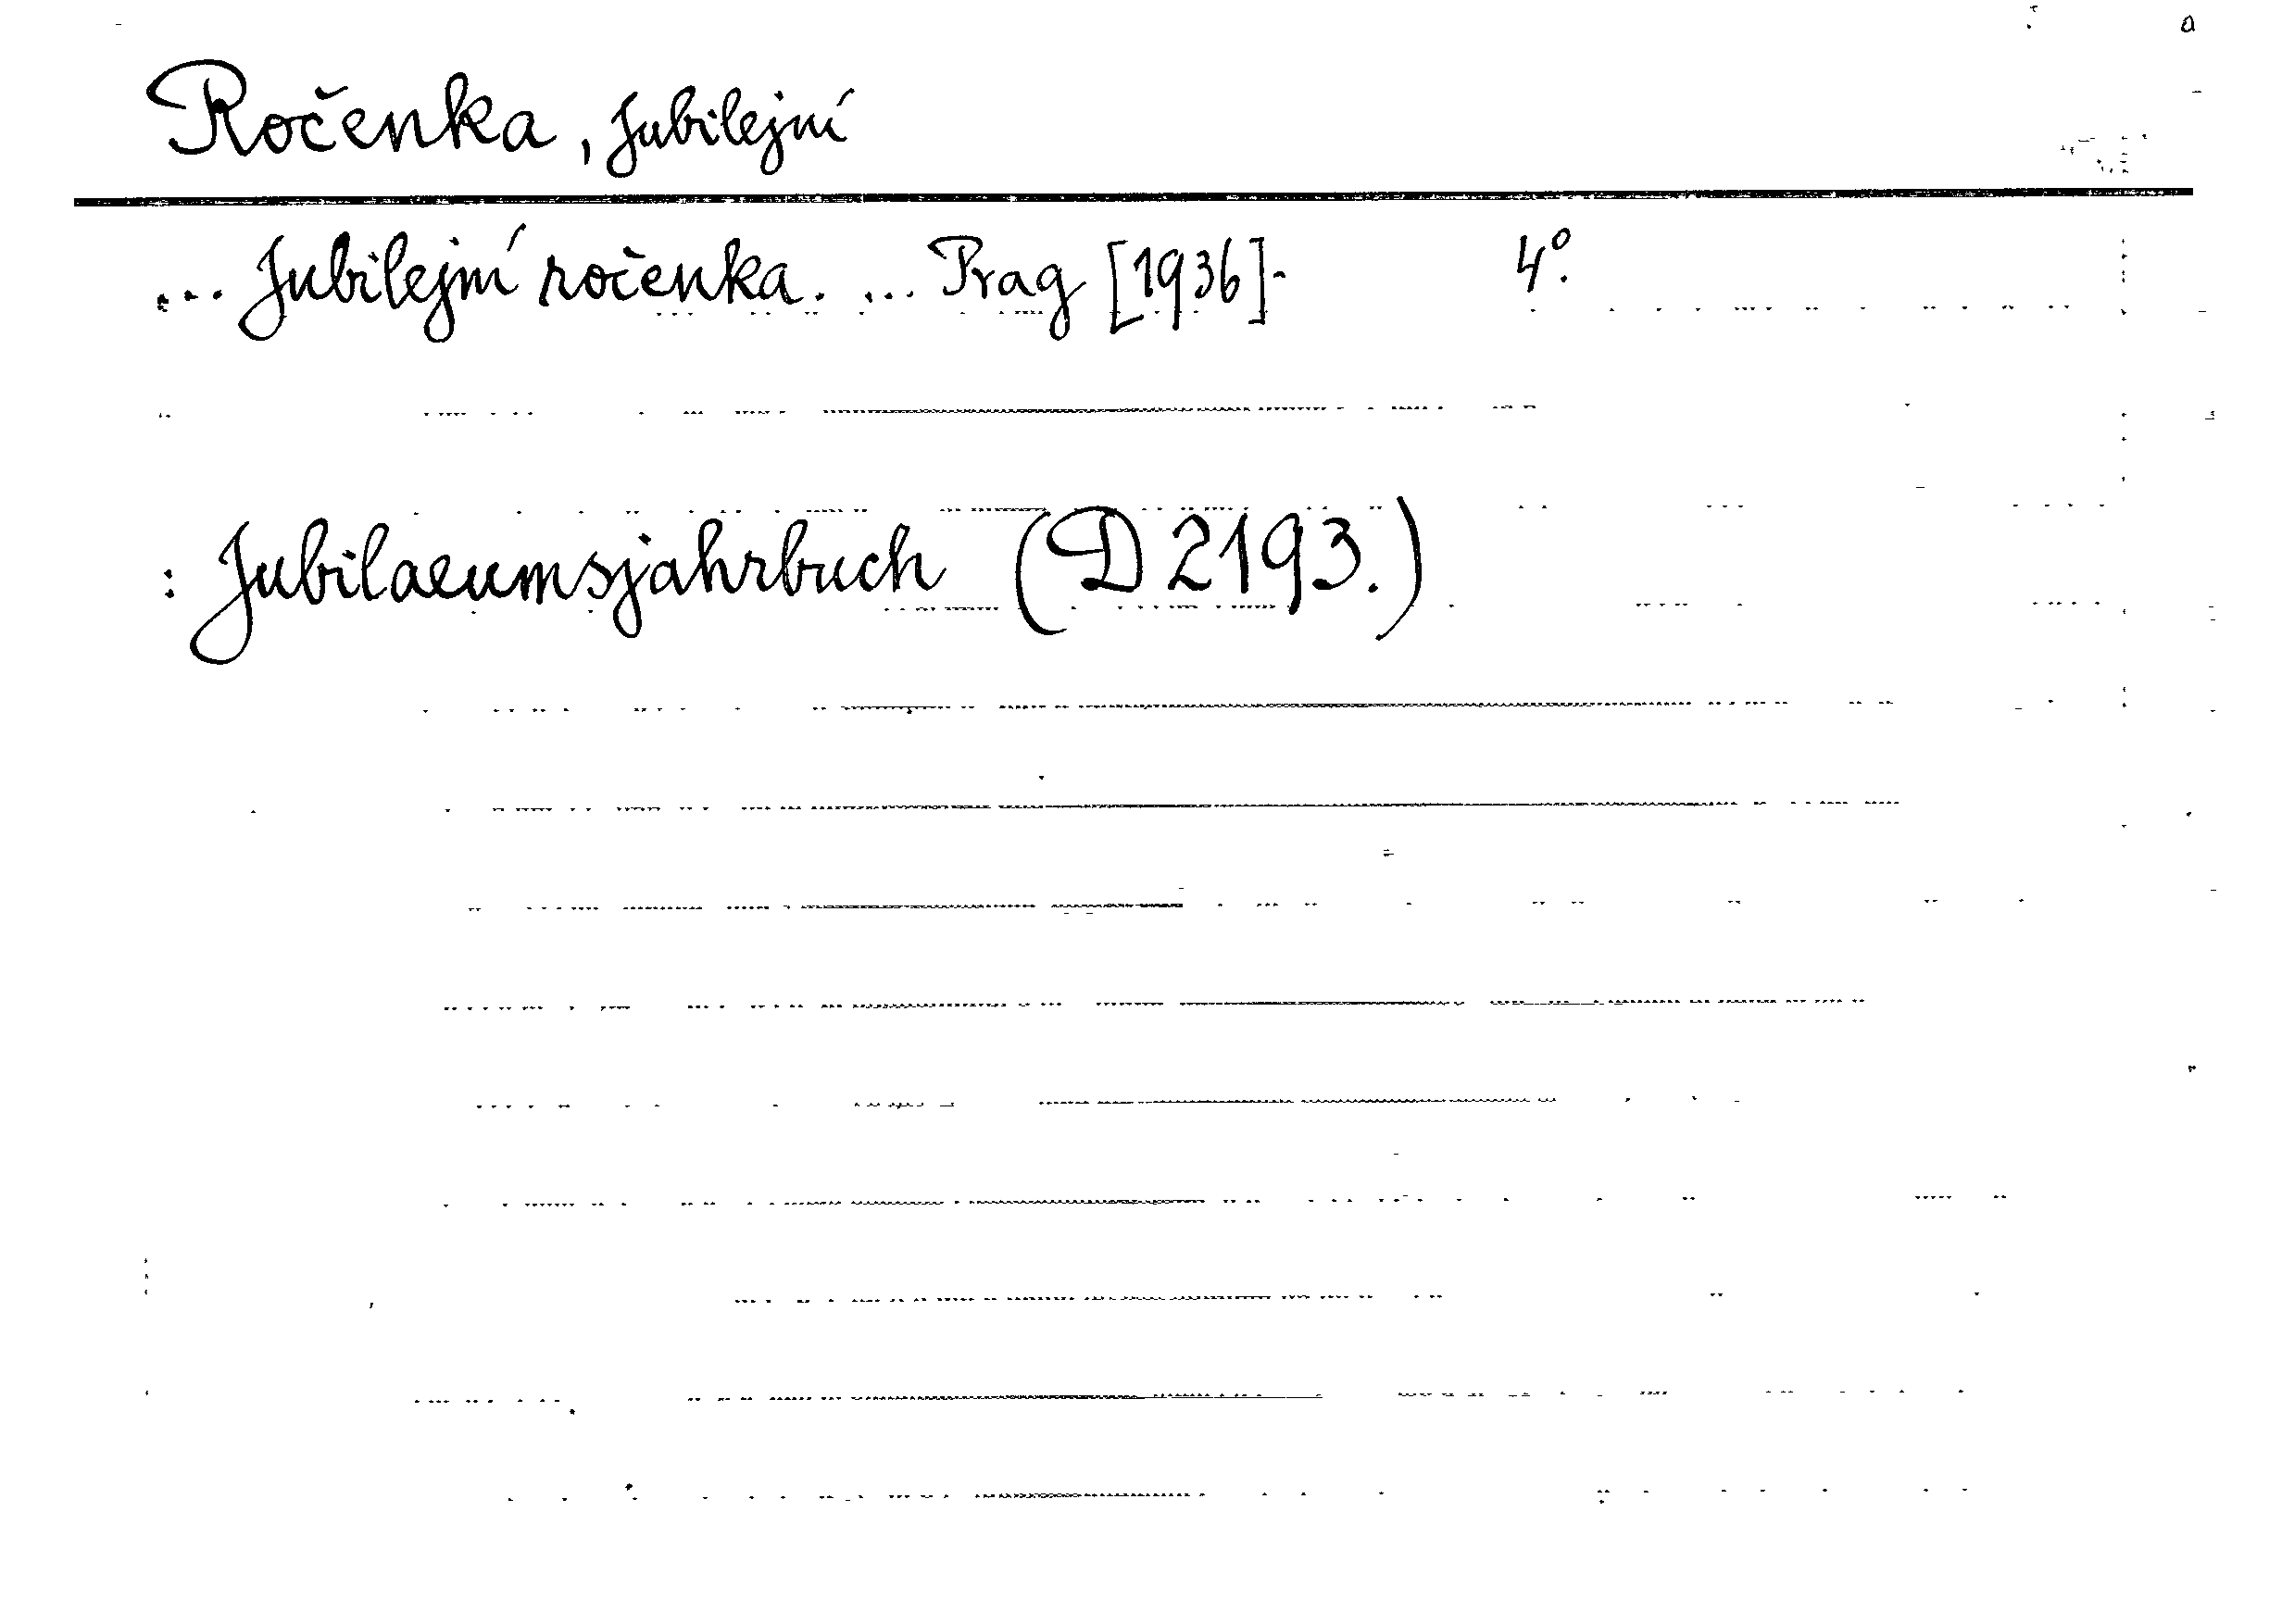 Ročenka, Jubilejní
... Jubilejní ročenka. ... Prag [1936]- 4°.
: Jubilaeumsjahrbuch (D 2193.)